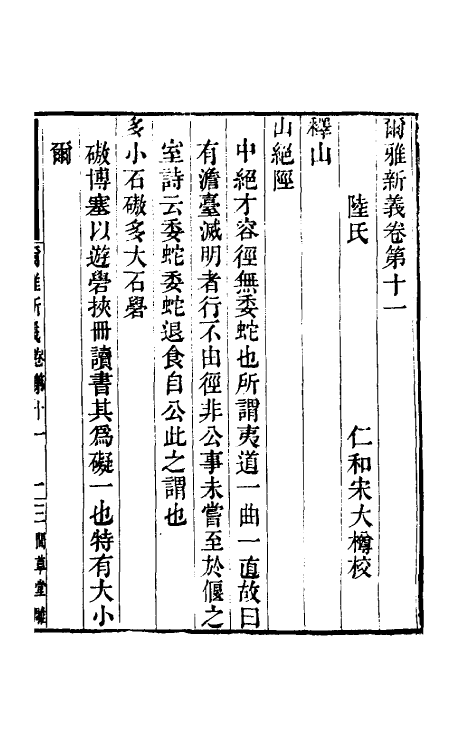 爾雅新義卷第十一
陸氏　仁和宋大樽校
釋山
山絕陘
中絕才容徑無委蛇也所謂夷道一曲一直故曰
有澹臺滅明者行不由徑非公事未嘗至於偃之
室詩云委蛇委蛇退食自公此之謂也
多小石磝多大石礐
磝博塞以遊礐挾冊讀書其為礙一也特有大小
爾
爾雅新義卷第十一　一　三間草堂雕